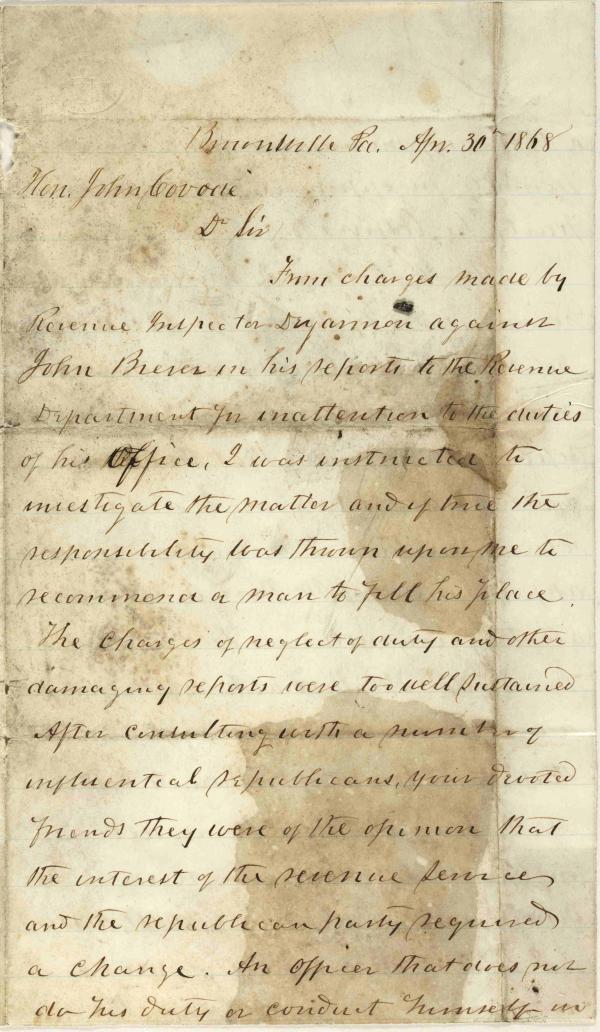 Brownsville Pa. Apr. 30" 1868
Hon. John Covode
Dr Sir
From charges made by
Revenue Inspector against
John in his reports to the Revenue
Department for inattention to the duties
of his Office, I was instructed to
investigate the matter and if true the
responsibility was thrown upon me to
recommend a man to fill his place.
The charges of neglect of duty and other
damaging reports were too well sustained
After consulting with a number of
influential republicans, your devoted
friends they were of the opinion that
the interest of the revenue service
and the republican party required
a change. An officer that does not
do his duty or conduct himself in